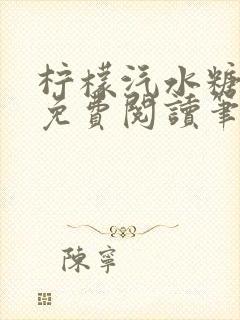 柠檬汽水糖
免費閱讀筆
陳寧